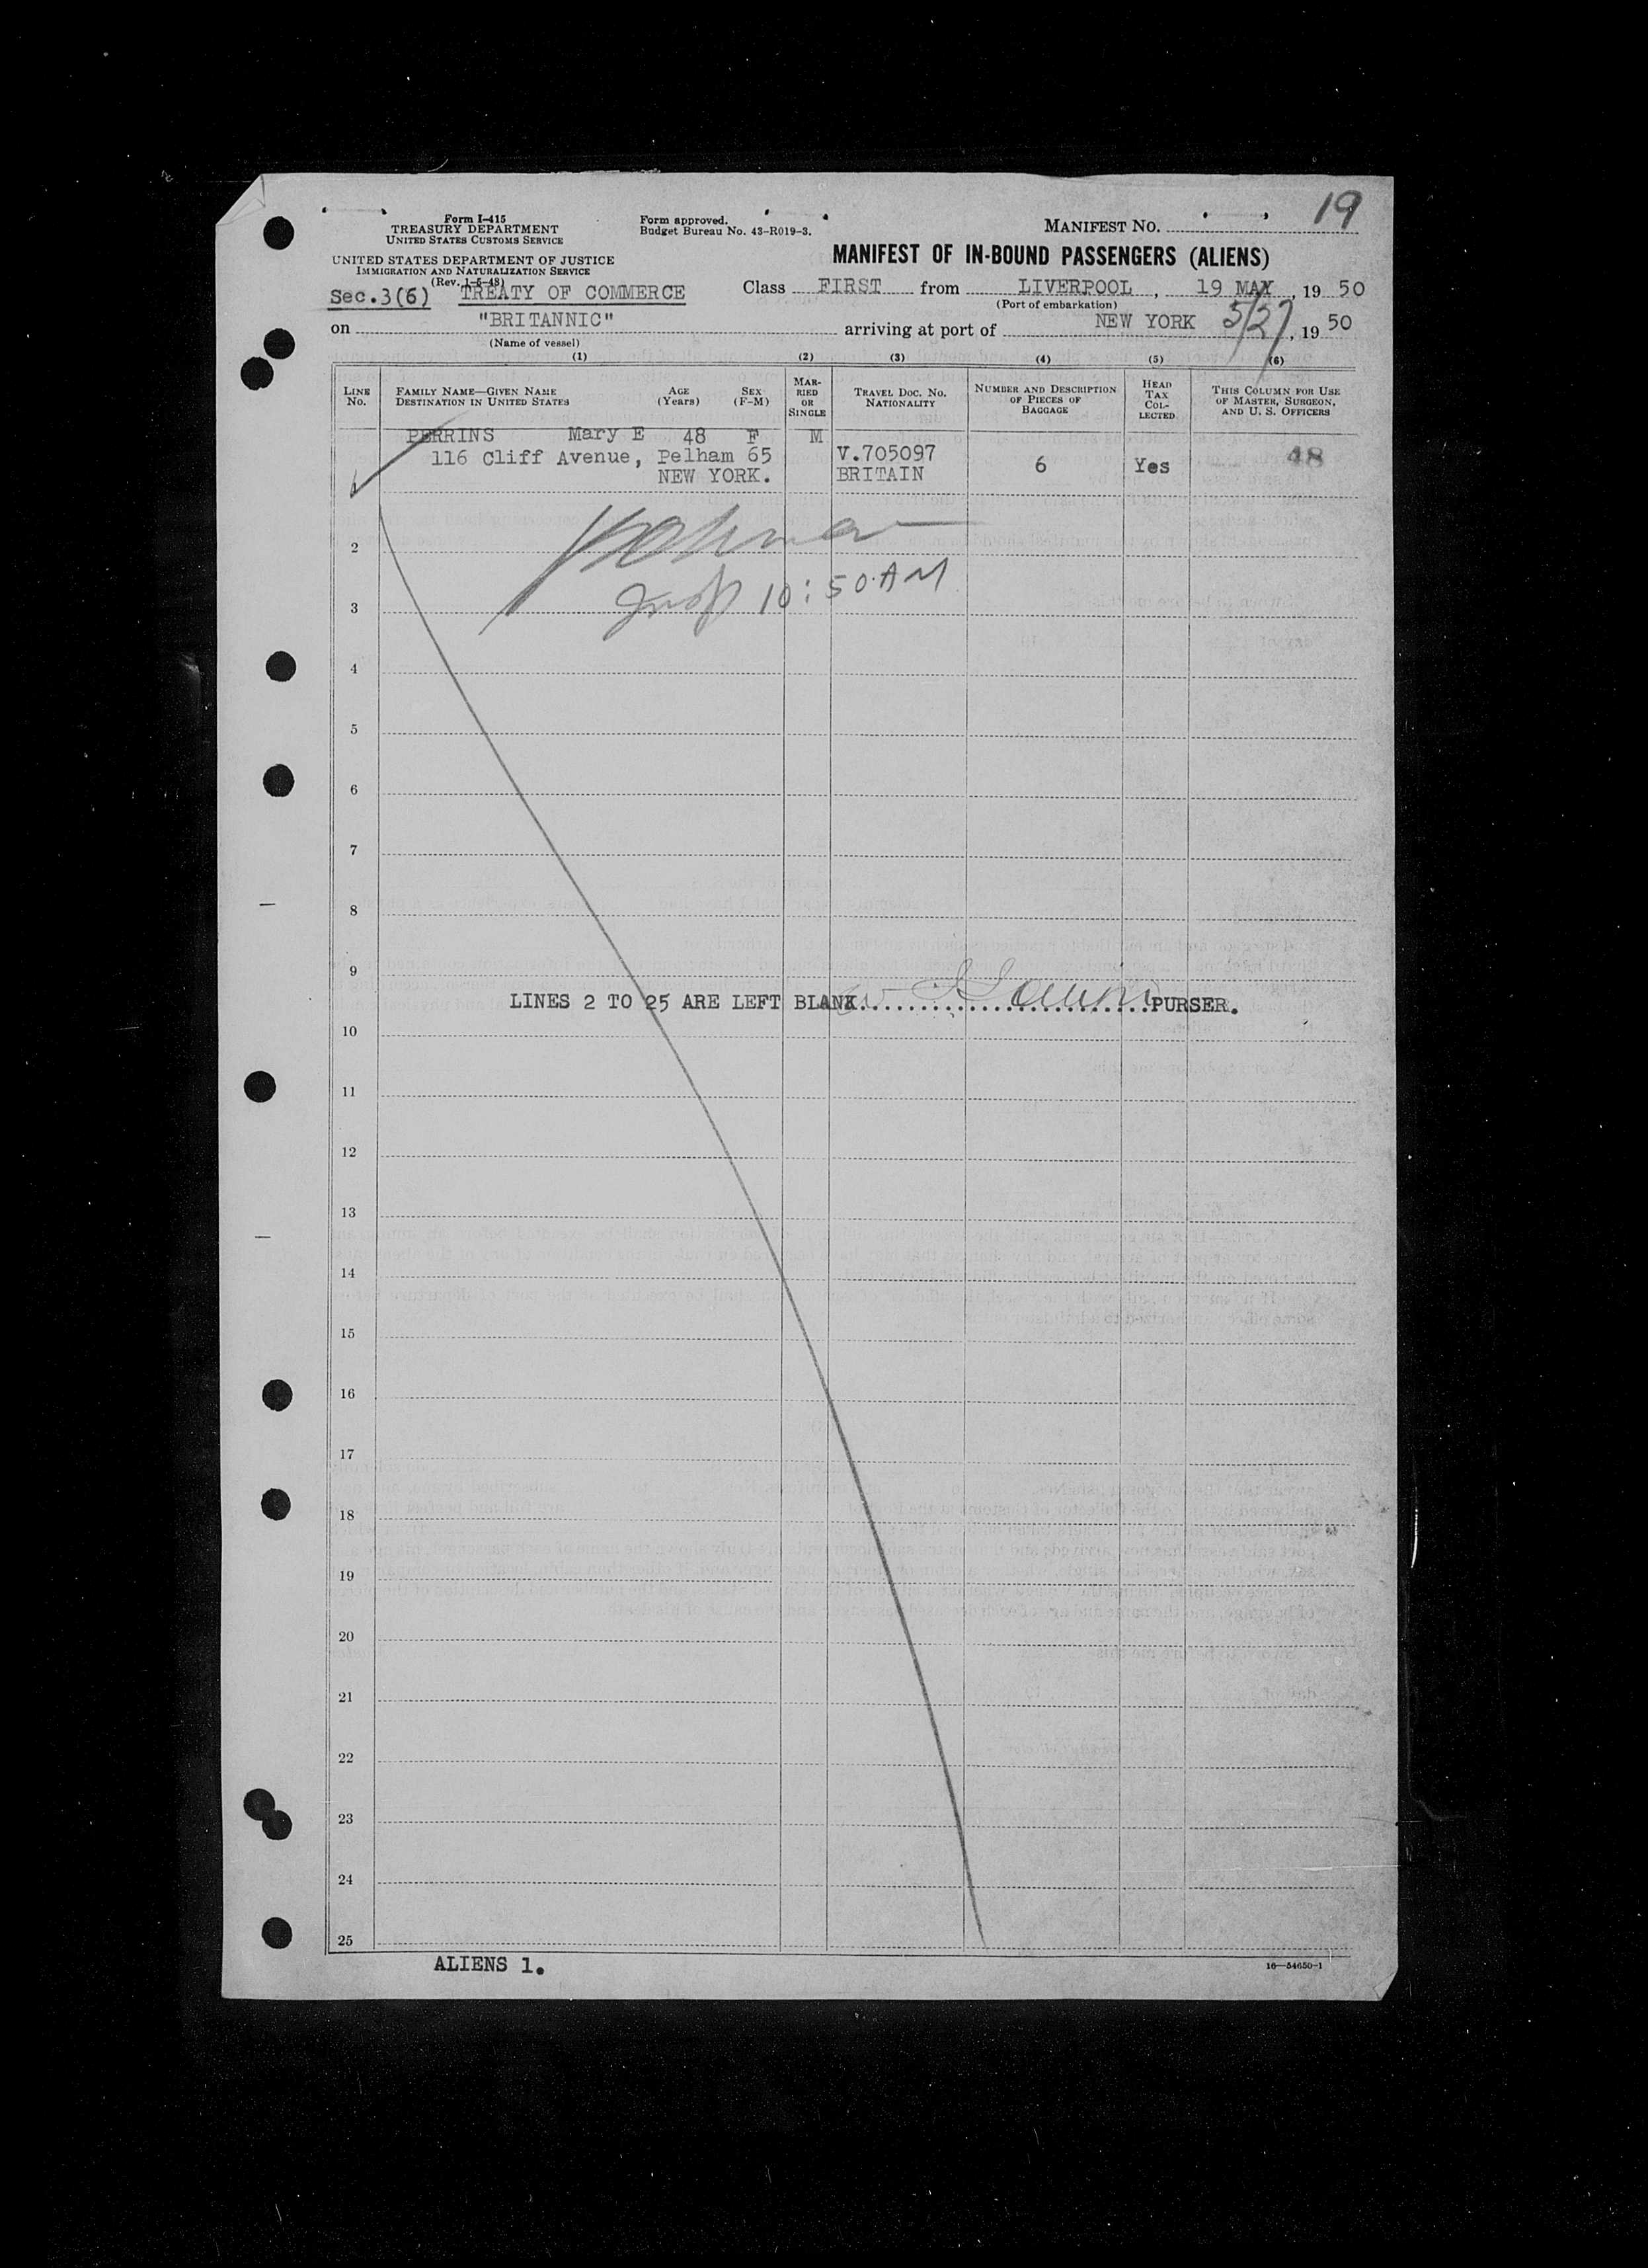 19
Form I-415
TREASURY DEPARTMENT
UNITED STATES CUSTOMS SERVICE
Form approved.
Budget Bureau No. 43-R019-3.
MANIFEST NO.
UNITED STATES DEPARTMENT OF JUSTICE
IMMIGRATION AND NATURALIZATION SERVICE
(Rev. 1-5-48)
MANIFEST OF IN-BOUND PASSENGERS (ALIENS)
Sec.3(6) TREATY OF COMMERCE
Class FIRST from LIVERPOOL, 19 MAY, 19 50
(Port of embarkation)
on "BRITANNIC" arriving at port of NEW YORK 5/27, 19 50
(Name of vessel)
(1) (2) (3) (4) (5) (6)
LINE No.
FAMILY NAME—GIVEN NAME
DESTINATION IN UNITED STATES
AGE (Years)
SEX (F-M)
MARRIED OR SINGLE
TRAVEL DOC. NO. NATIONALITY
NUMBER AND DESCRIPTION OF PIECES OF BAGGAGE
HEAD TAX COLLECTED
THIS COLUMN FOR USE OF MASTER, SURGEON, AND U. S. OFFICERS
PERRINS Mary E 48 F M
116 Cliff Avenue, Pelham 65 V.705097 6 Yes 48
NEW YORK. BRITAIN
2
10:50 AM
3
4
5
6
7
8
9
LINES 2 TO 25 ARE LEFT BLANK. PURSER.
10
11
12
13
14
15
16
17
18
19
20
21
22
23
24
25
ALIENS 1.
16—54650-1